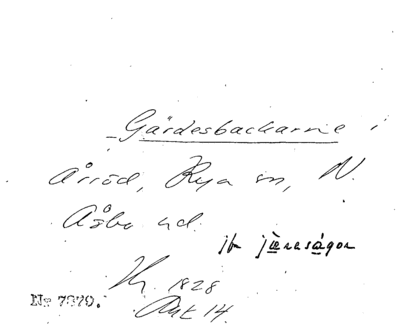 Gärdesbackarne i
Årröd, Rya sn, N.
Åsbo hd.
jfr jæresågor
1828
Akt 14
No 7979.